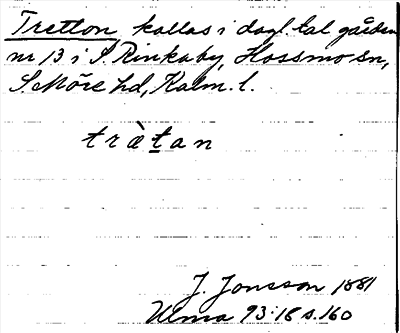 Tretton kallas i dagl. tal gården
nr 13 i S. Rinkaby, Hossmo sn,
S Möre hd, Kalm. l.
tràtan
J. Jonsson 1881
Ulma 93:18 s. 160